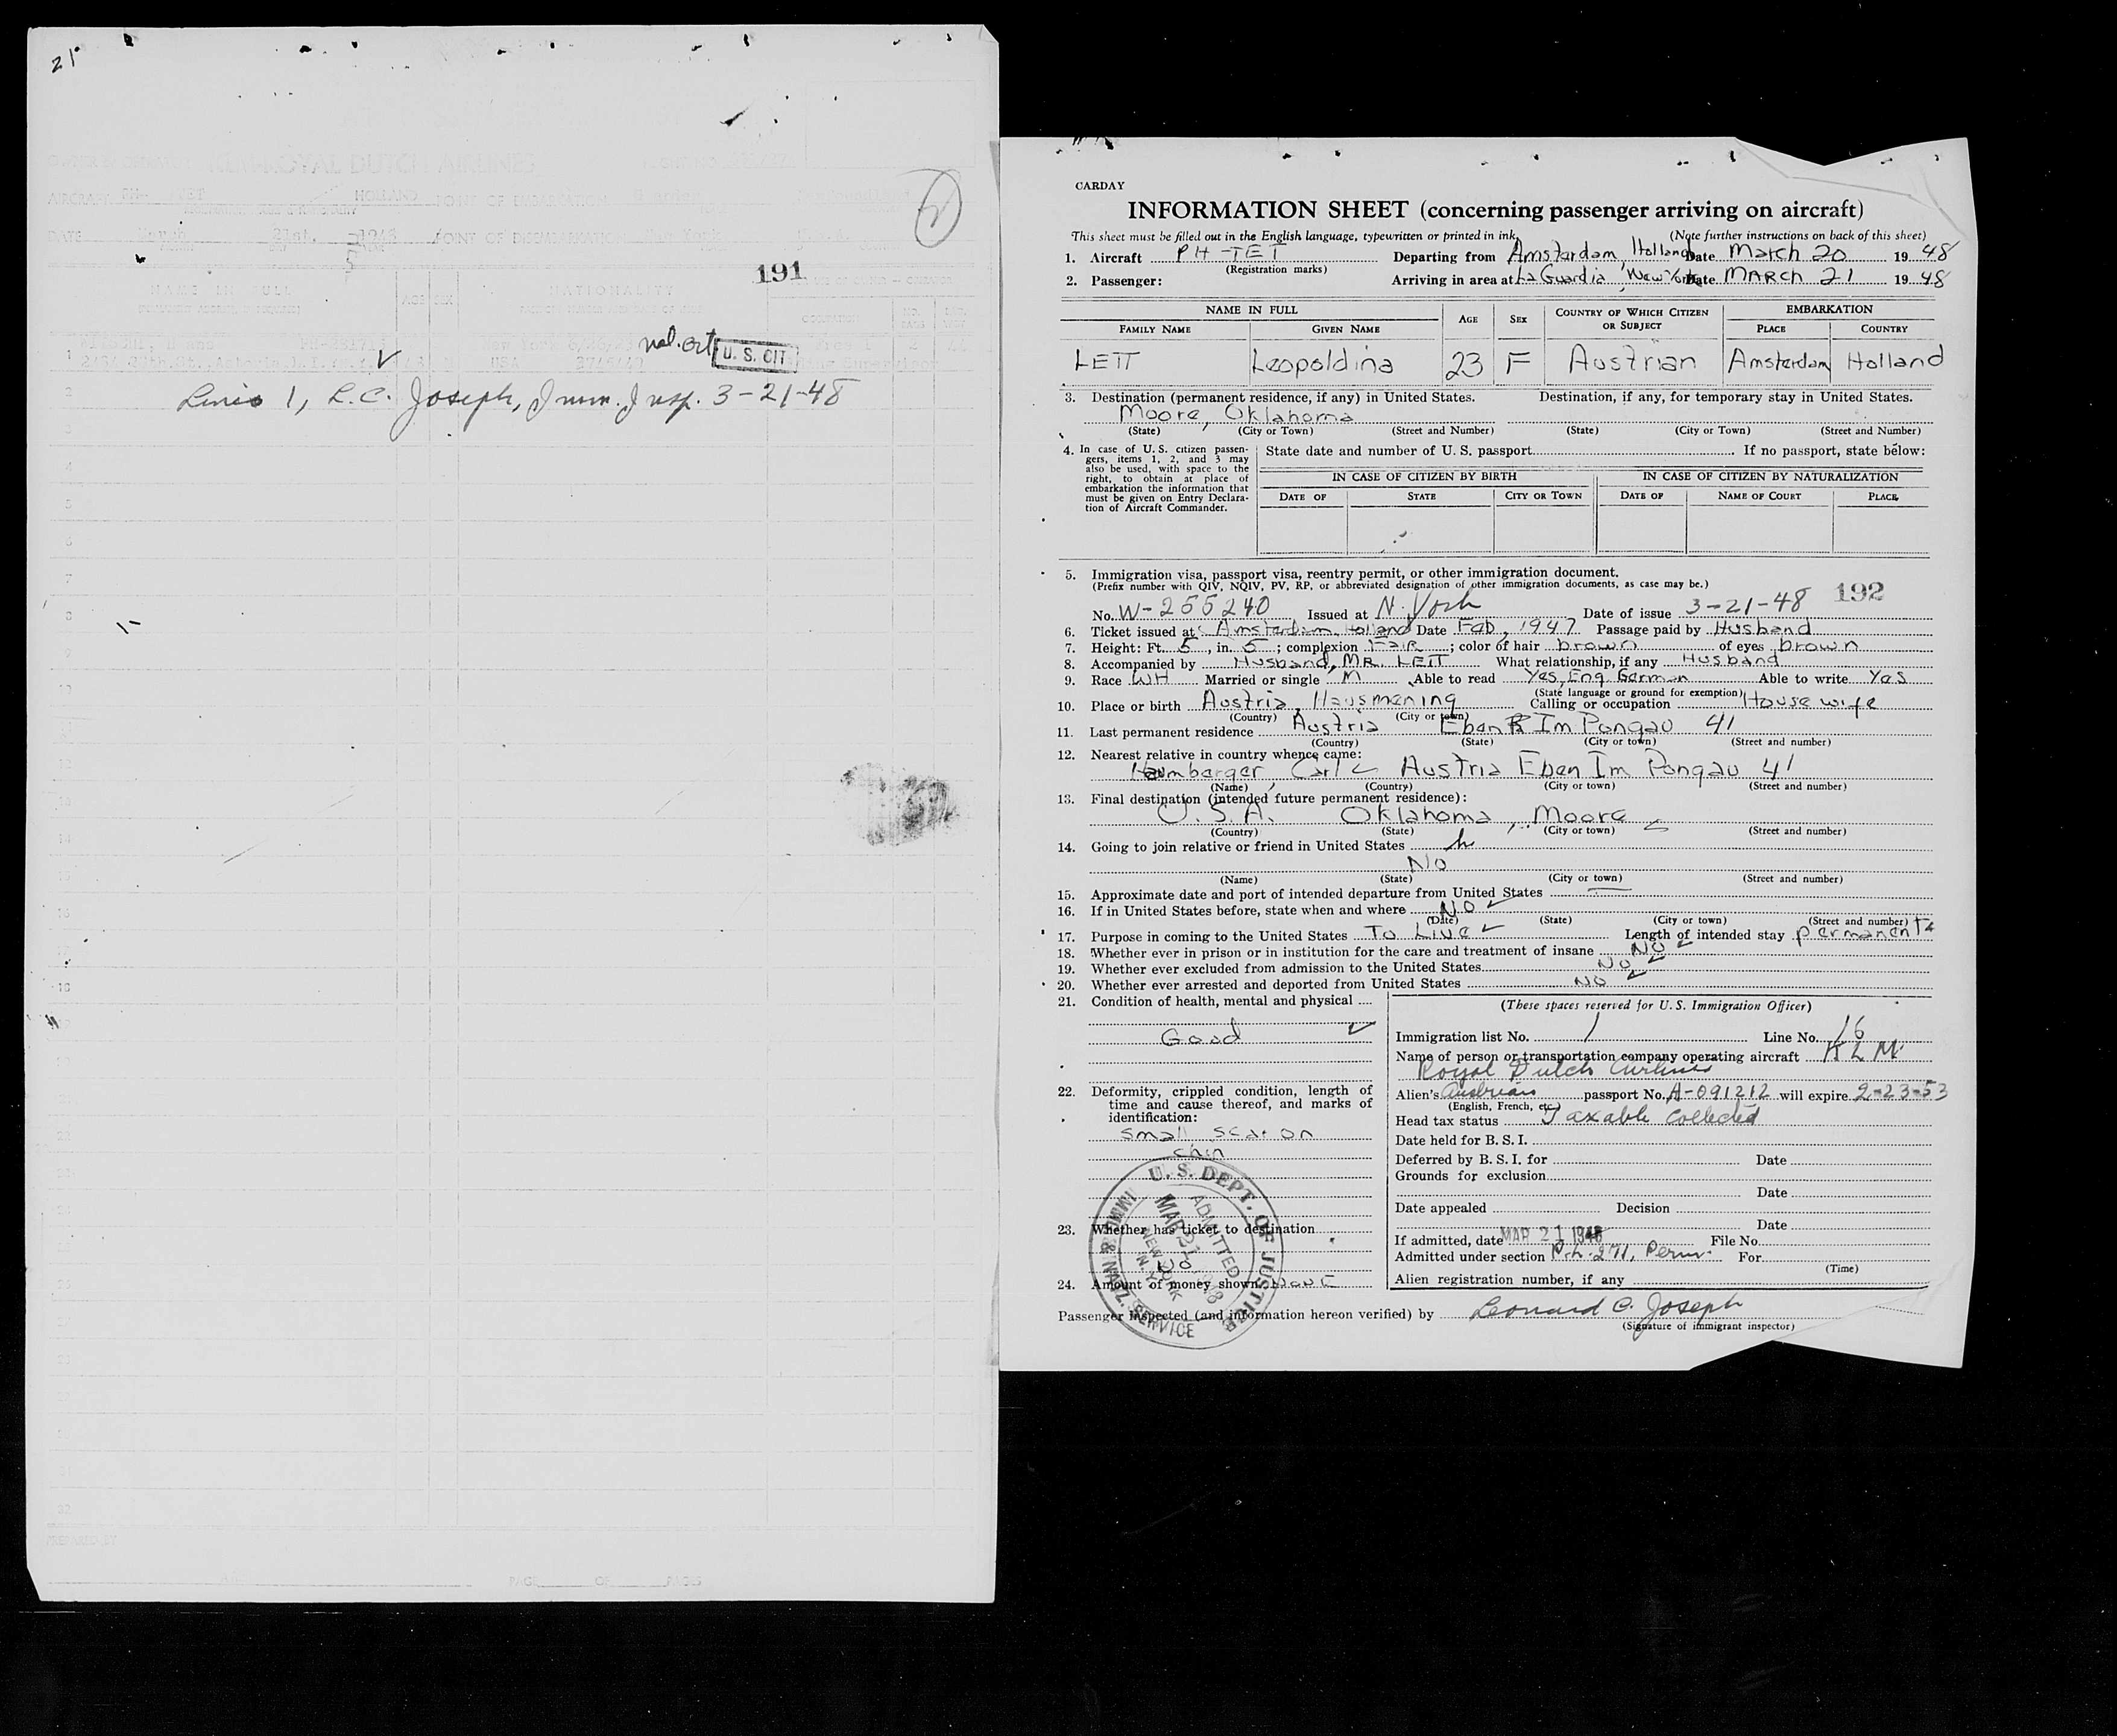 21
KLM ROYAL DUTCH AIRLINES
AIRCRAFT PH- TET HOLLAND POINT OF EMBARKATION
DATE March 21st. 1948 POINT OF DISEMBARKATION New York
5
191
NAME IN FULL AGE SEX NATIONALITY
nat. cert. U. S. CIT
1 USA
Line 1, L.C. Joseph, Imm. Insp. 3-21-48
2
3
4
5
6
7
8
9
10
11
12
13
14
15
16
17
18
19
22
23
24
25
26
32
PREPARED BY
PAGE OF PAGES
CARDAY
INFORMATION SHEET (concerning passenger arriving on aircraft)
This sheet must be filled out in the English language, typewritten or printed in ink. (Note further instructions on back of this sheet)
1. Aircraft PH-TET Departing from Amsterdam, Holland Date March 20 19 48
(Registration marks)
2. Passenger: Arriving in area at La Guardia, New York Date MARCH 21 19 48
NAME IN FULL AGE SEX COUNTRY OF WHICH CITIZEN OR SUBJECT EMBARKATION
FAMILY NAME GIVEN NAME PLACE COUNTRY
LETT Leopoldina 23 F Austrian Amsterdam Holland
3. Destination (permanent residence, if any) in United States. Destination, if any, for temporary stay in United States.
Moore, Oklahoma
(State) (City or Town) (Street and Number) (State) (City or Town) (Street and Number)
4. In case of U. S. citizen passen-
gers, items 1, 2, and 3 may
also be used, with space to the
right, to obtain at place of
embarkation the information that
must be given on Entry Declara-
tion of Aircraft Commander.
State date and number of U. S. passport. If no passport, state below:
IN CASE OF CITIZEN BY BIRTH IN CASE OF CITIZEN BY NATURALIZATION
DATE OF STATE CITY OR TOWN DATE OF NAME OF COURT PLACE
5. Immigration visa, passport visa, reentry permit, or other immigration document.
(Prefix number with QIV, NQIV, PV, RP, or abbreviated designation of other immigration documents, as case may be.) 192
No. W-255240 Issued at N. York Date of issue 3-21-48
6. Ticket issued at Amsterdam, Holland Date Feb, 1947 Passage paid by Husband
7. Height: Ft. 5, in. 5; complexion Fair; color of hair brown of eyes brown
8. Accompanied by Husband, MR. LETT What relationship, if any Husband
9. Race WH Married or single M Able to read Yes, Eng. German Able to write Yes
(State language or ground for exemption)
10. Place or birth Austria, Hausmening Calling or occupation Housewife
(Country) (City or town)
11. Last permanent residence Austria Eben Im Pongau 41
(Country) (State) (City or town) (Street and number)
12. Nearest relative in country whence came:
Carl Austria Eben Im Pongau 41
(Name) (Country) (City or town) (Street and number)
13. Final destination (intended future permanent residence):
U.S.A. Oklahoma, Moore
(Country) (State) (City or town) (Street and number)
14. Going to join relative or friend in United States
No
(Name) (State) (City or town) (Street and number)
15. Approximate date and port of intended departure from United States
16. If in United States before, state when and where No
(Date) (State) (City or town) (Street and number)
17. Purpose in coming to the United States To Live Length of intended stay permanente
18. Whether ever in prison or in institution for the care and treatment of insane No
19. Whether ever excluded from admission to the United States No
20. Whether ever arrested and deported from United States No
21. Condition of health, mental and physical
Good
22. Deformity, crippled condition, length of
time and cause thereof, and marks of
identification:
small scar on
chin
23. Whether has ticket to destination
No
24. Amount of money shown NONE
U. S. DEPT. OF JUSTICE
IMMIG. & NATZ. SERVICE
ADMITTED
MAR 21 1948
NEW YORK
N.Y.
(These spaces reserved for U. S. Immigration Officer)
Immigration list No. 1 Line No. 16
Name of person or transportation company operating aircraft KLM
Royal Dutch Airlines
Alien's Austrian passport No. A-091212 will expire 2-23-53
(English, French, etc.)
Head tax status Taxable collected
Date held for B. S. I.
Deferred by B. S. I. for Date
Grounds for exclusion
Date
Date appealed Decision
Date
If admitted, date MAR 21 1948 File No.
Admitted under section 271, Perm. For
(Time)
Alien registration number, if any
Passenger inspected (and information hereon verified) by Leonard C. Joseph
(Signature of immigrant inspector)